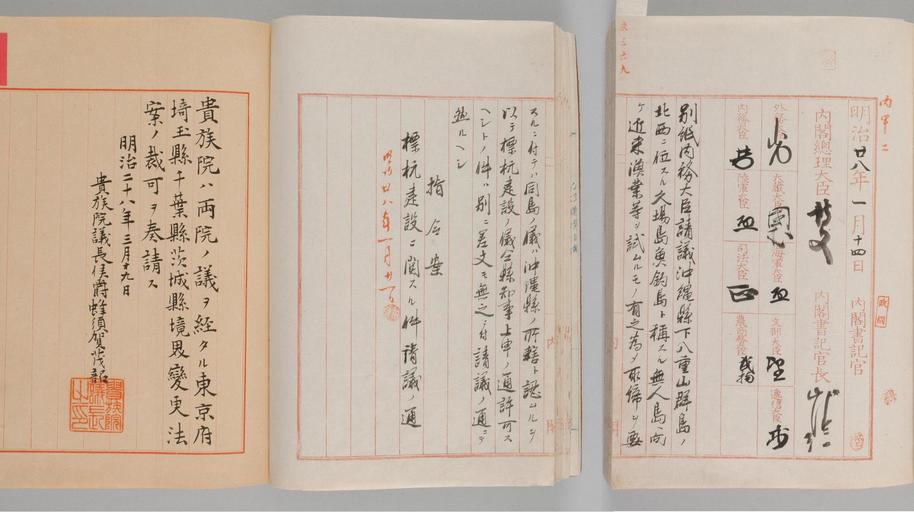 明治廿八年一月十四日
内閣書記官
内閣總理大臣
内閣書記官長
別紙内務大臣請議沖縄縣下八重山群島ノ
北西ニ位スル久場島魚釣島ト稱スル無人島ヘ向
ケ近來漁業等ヲ試ムルモノ有之為メ取締ヲ要
スルニ付テハ同島ノ儀ハ沖縄縣ノ所轄ト認ムルヲ
以テ標杭建設ノ儀仝縣知事上申ノ通許可ス
ヘシトノ件ハ別ニ差支モ無之ニ付請議ノ通ニテ
然ルヘシ
指令案
標杭建設ニ関スル件請議ノ通
明治廿八年一月廿一日
貴族院ハ両院ノ議ヲ経タル東京府
埼玉縣千葉縣茨城縣境界變更法
案ノ裁可ヲ奏請ス
明治二十八年三月十九日
貴族院議長侯爵蜂須賀茂韶
貴族院議長之印